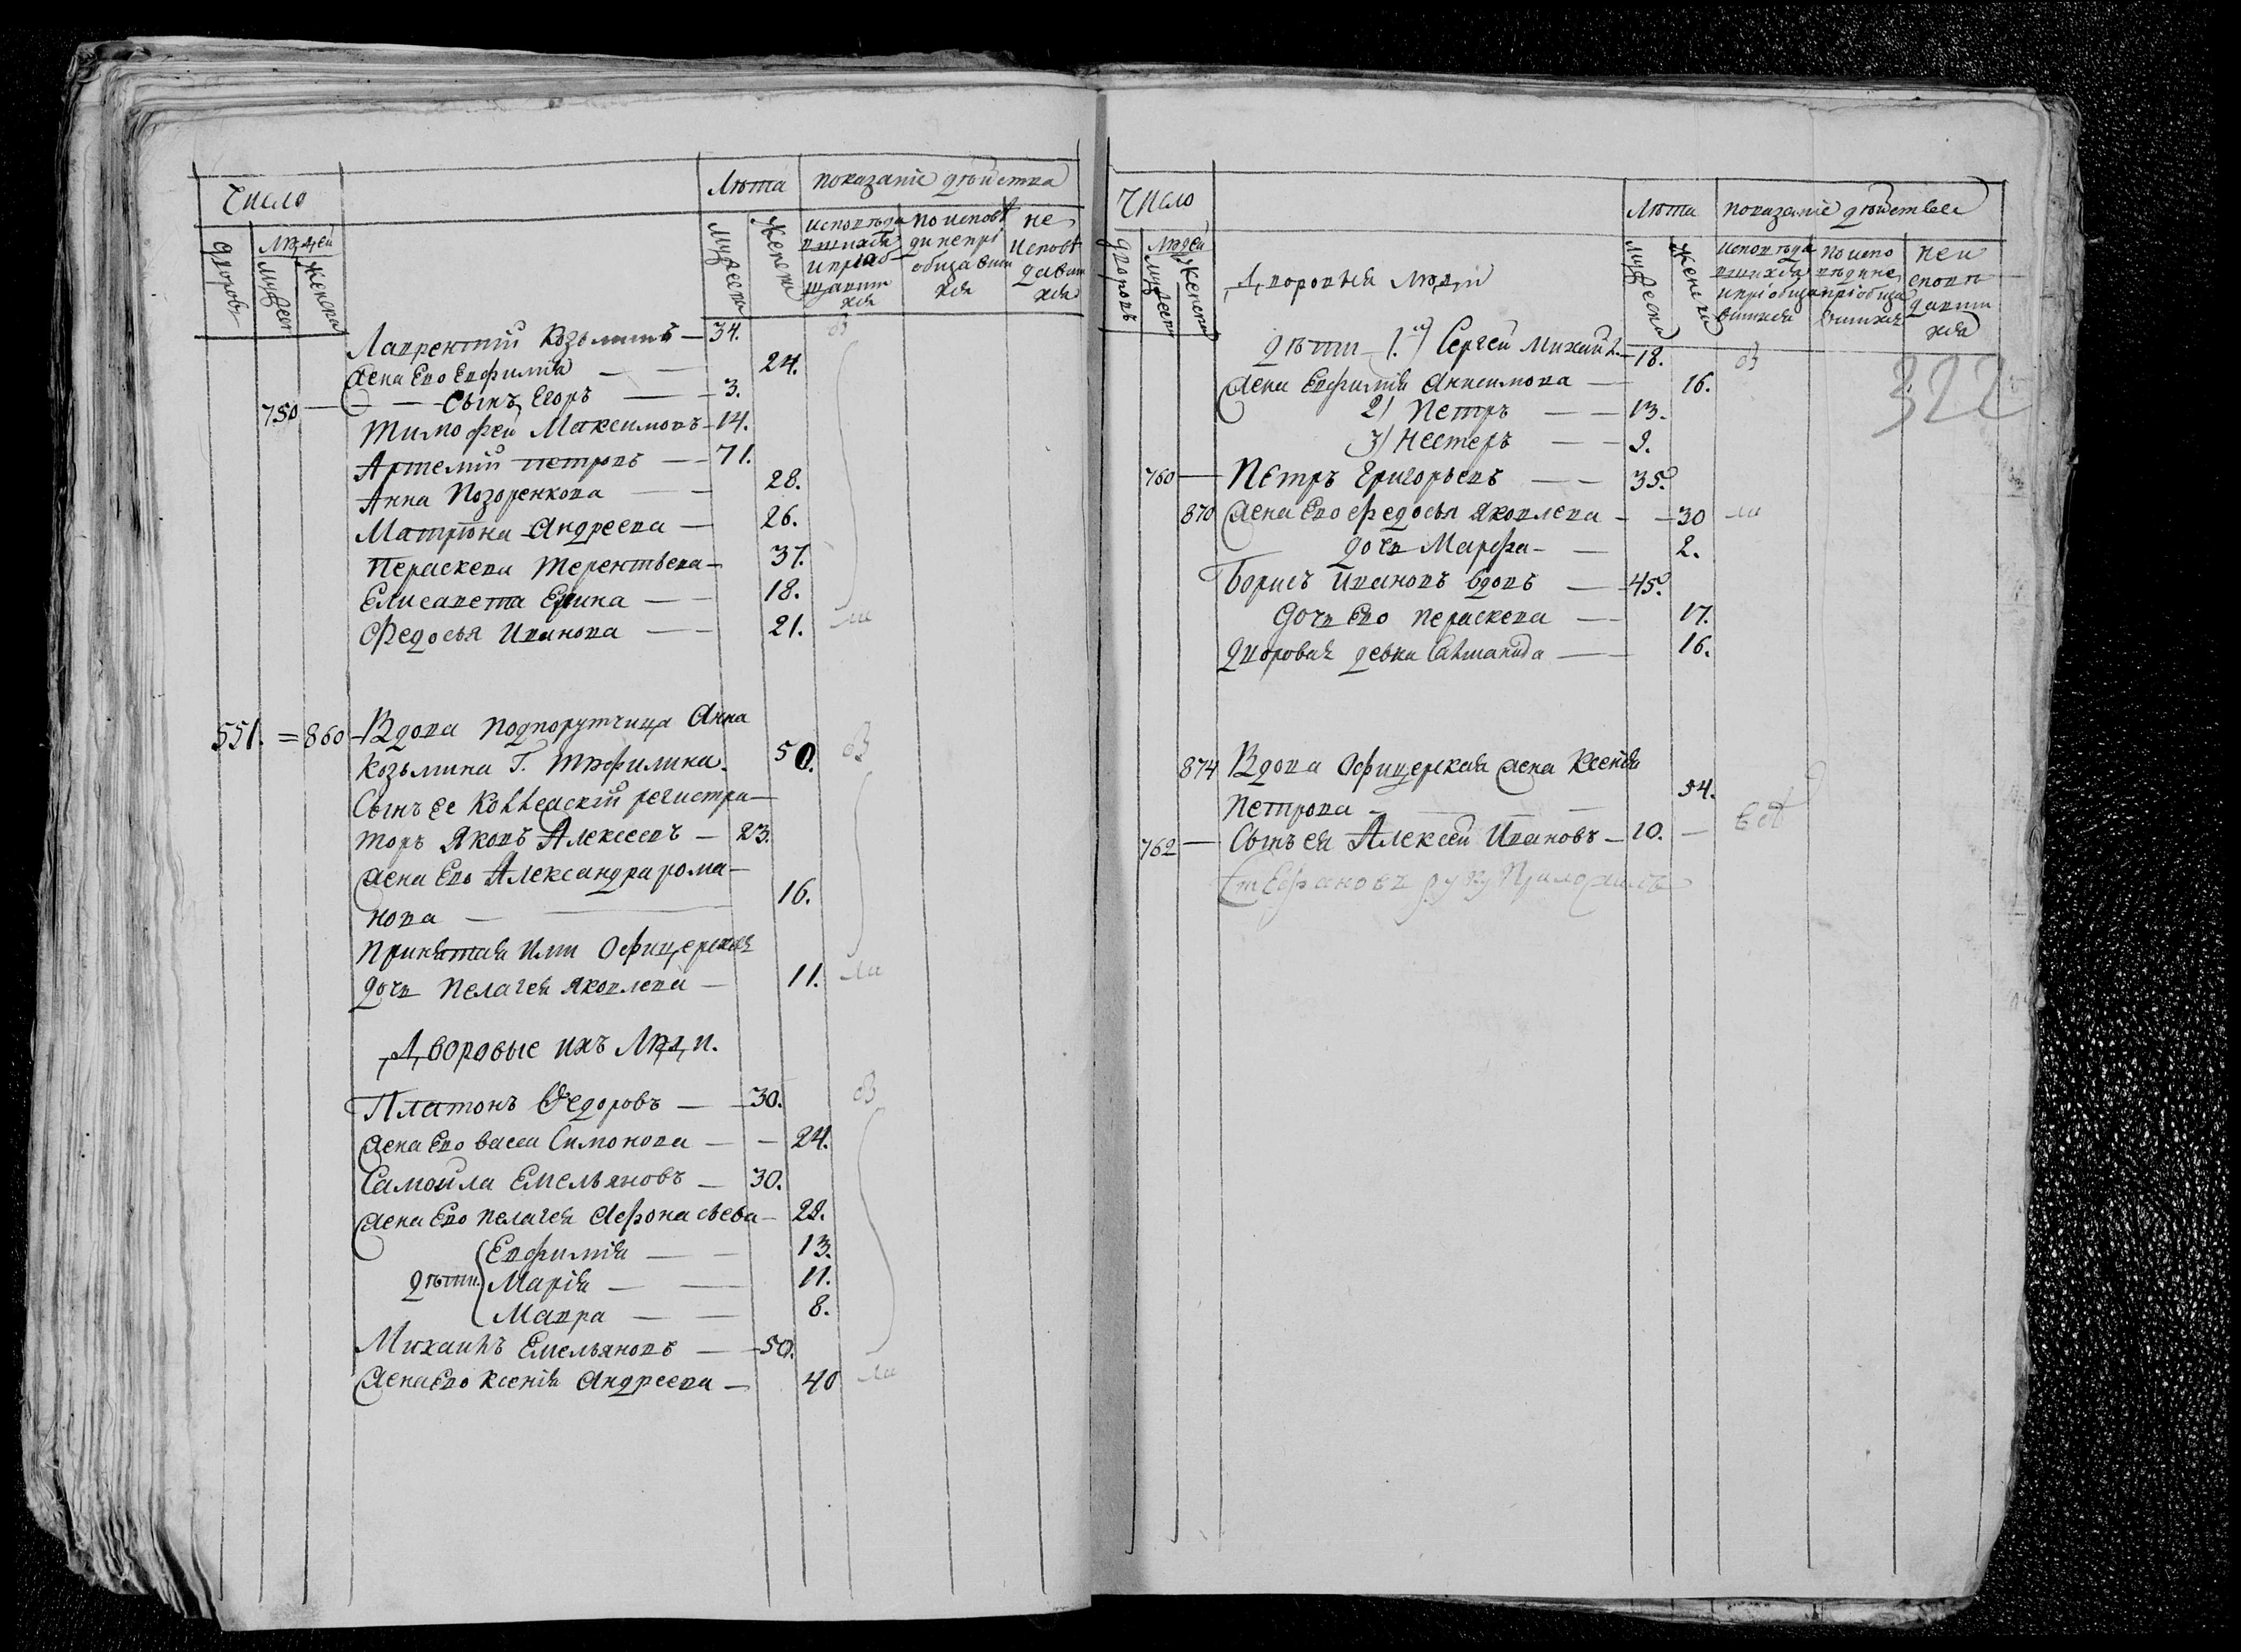 Число
Лѣта показаніе действа
дворовъ
Людей
мужеск
женска
мужеска
женска
исповѣда
вшихся
и пріоб
щавши
хся
по исповѣ
ди непрі
общавши
хся
не
исповѣ
давши
хся
Лаврентій Козьминъ — 34.
Жена Ево Евфимія — — 24.
750 — Сынъ Егоръ — 3.
Тимофей Максимовъ — 14.
Артемій Петровъ — 71.
Анна Позоренкова — 28.
Матрона Андреева — 26.
Пераскева Терентьева — 37.
Елисавета — 18.
Федосья Иванова — 21. ли
551. = 860 — Вдова Подпорутчица Анна
Козьмина Г. 50.
Сынъ ее Коллежскій регистра-
торъ Яковъ Алексеевъ — 23.
Жена Ево Александра рома-
нова — 16.
Принятая Ими Офицерская
дочь Пелагея Яковлева — 11. ли
Дворовые ихъ Люди.
Платонъ Федоровъ — 30.
Жена Ево васса Симонова — 24.
Самойла Емельяновъ — 30.
Жена Ево пелагея Афонасьева — 28.
Евфимія — 13.
дѣти Марія — 11.
Мавра — 8.
Михаилъ Емельяновъ — 50.
Жена Ево Ксенія Андреева — 40 ли
Число
Лѣта показаніе действа
дворовъ
Людей
мужеск
женска
Дворовыя Люди
мужеска
женска
исповѣда
вшихся
и пріобща
вшихся
по испо
вѣди не
пріобща
вшихся
не и
сповѣ
давши
хся
322
дѣти 1.й) Сергей Михайл. — 18.
Жена Евфимія Анисимова — 16.
2) Петръ — 13.
3) Нестеръ — 9.
760 — Петръ Григорьевъ — 35.
870 Жена Ево Федосья Яковлева — 30 ли
дочь Марфа — 2.
Борисъ Ивановъ вдовъ — 45.
дочь Ево Пераскева — 17.
дворовая девка — 16.
874 Вдова Офицерская Жена Ксенія
Петрова — 54.
762 — Сынъ ея Алексей Ивановъ — 10. —
Стефановъ руку Приложилъ